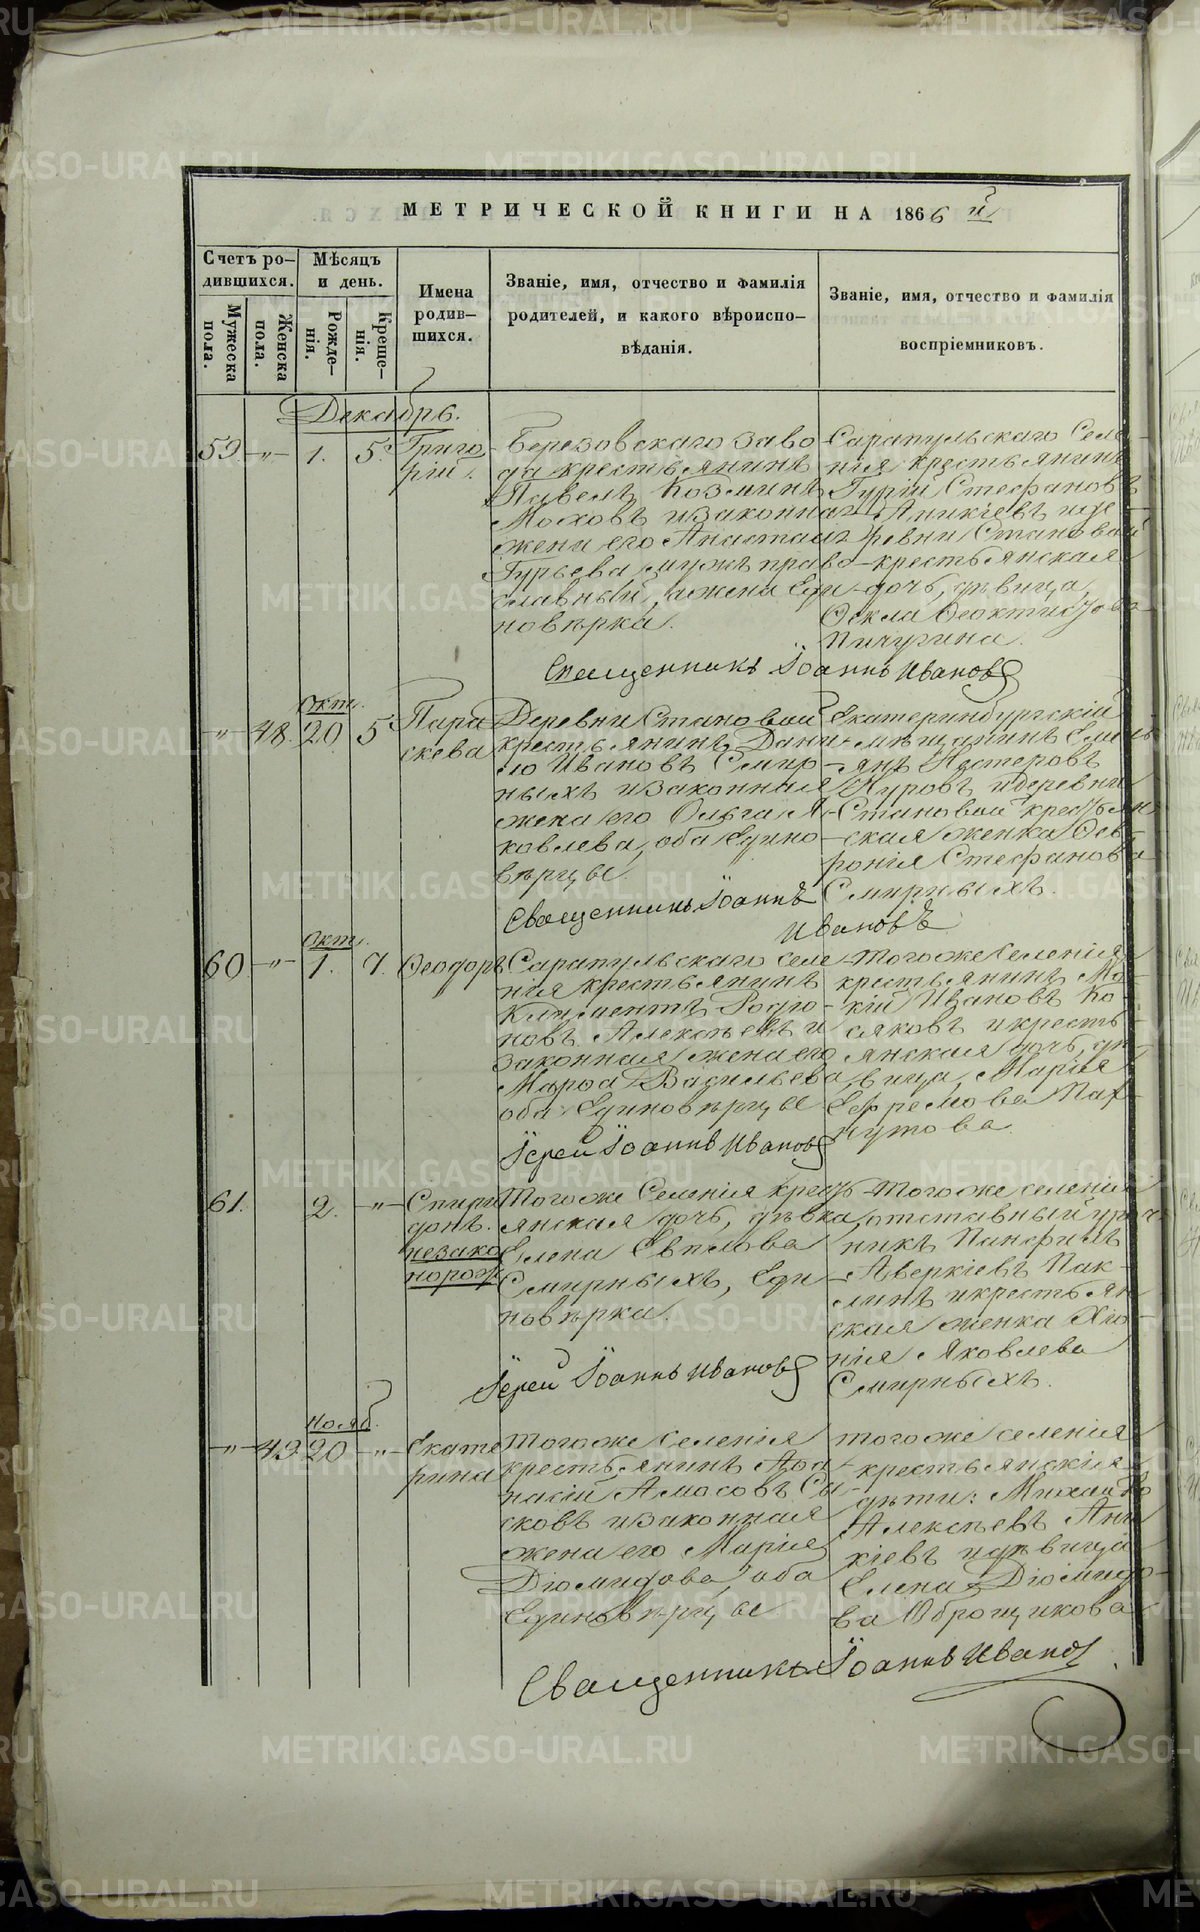 МЕТРИЧЕСКОЙ КНИГИ НА 1866 й
Счетъ ро-
дившихся.
Мѣсяцъ
и день.
Мужеска
пола.
Женска
пола.
Рожде-
нія.
Креще-
нія.
Имена
родив-
шихся.
Званіе, имя, отчество и фамилія
родителей, и какого вѣроиспо-
вѣданія.
Званіе, имя, отчество и фамилія
воспріемниковъ.
Декабрь.
59. -"- 1. 5.
Григо
рій.
Березовскаго заво
да крестьянинъ
Павелъ Козминъ
Моховъ и законная
жена его Анастасія
Гурьева, мужъ право
славный, а жена Еди
новѣрка.
Сарапульскаго Селе-
нія крестьянинъ
Гурій Стефановъ
Аникіевъ и де-
ревни Становой
крестьянская
дочь, дѣвица,
Ѳекла Ѳеоктистова
Пичугина.
Священникъ Іоаннъ Ивановъ
Окт.
-"- 48. 20. 5
Пара
скева
Деревни Становой
крестьянинъ Дани
ло Ивановъ Смир-
ныхъ и законная
жена его Ольга Я-
ковлева, оба Едино
вѣрцы
Екатеринбургскій
мѣщанинъ Емель
янъ Нестеровъ
и деревни
Становой крестьян
ская женка Ѳев-
ронія Стефанова
Смирныхъ.
Священникъ Іоаннъ
Ивановъ
Окт.
60 -"- 1. 7.
Ѳеодоръ
Сарапульскаго селе
нія крестьянинъ
Климентъ Родіо-
новъ Алексѣевъ и
законная жена его
Марѳа Васильева
оба Единовѣрцы
Тогоже Селенія
крестьянинъ Мо-
кій Ивановъ Ко-
сяковъ и кресть-
янская дочь, дѣ-
вица, Марія
Ефремова Паф-
нутова
Іерей Іоаннъ Ивановъ
61. 2. -"-
Спири
донъ.
незако
норож
Тогоже Селенія кресть
янская дочь, дѣвка,
Елена Евплова
Смирныхъ, Еди
новѣрка.
Тогоже селенія
отставный уряд-
никъ Панфилъ
Аверкіевъ Пак-
линъ и крестьян
ская женка Хіо-
нія Яковлева
Смирныхъ.
Іерей Іоаннъ Ивановъ
Нояб.
-"- 49 20 -"-
Екате
рина
Тогоже Селенія
крестьянинъ Аѳа-
насій Амосовъ Сы-
сковъ и законная
жена его Марія
Діомидова, оба
Единовѣрцы
Тогоже селенія
крестьянскія
дѣти: Михаилъ
Алексѣевъ Ани
кіевъ и дѣвица
Елена Діомидо-
ва Оброщикова
Священникъ Іоаннъ Ивановъ